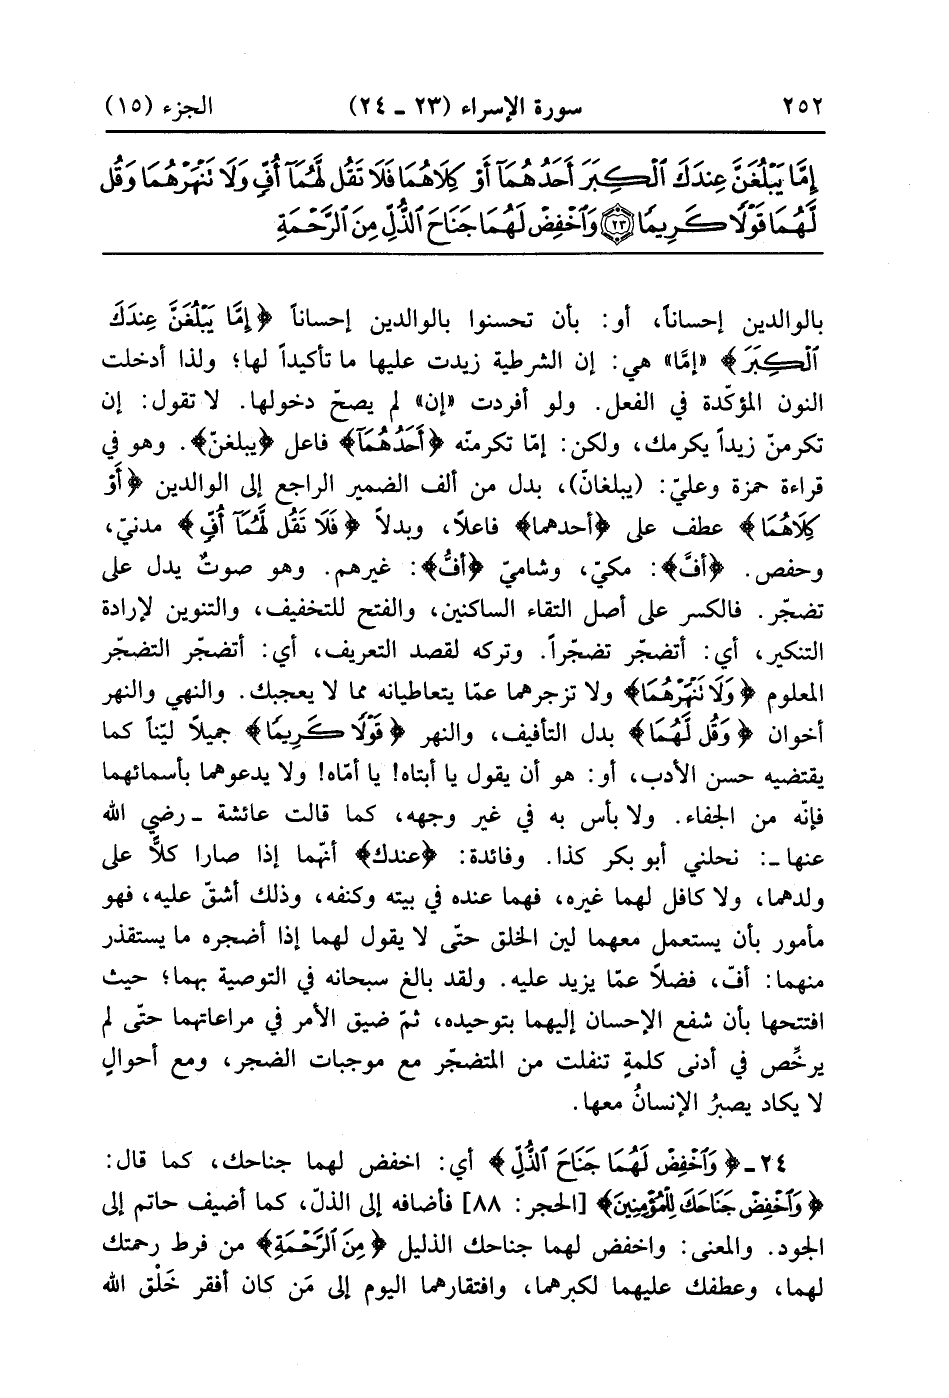 ٢٥٢ سورة الإسراء (٢٣ ـ ٢٤) الجزء (١٥)
إِمَّا يَبْلُغَنَّ عِندَكَ ٱلْكِبَرَ أَحَدُهُمَآ أَوْ كِلَاهُمَا فَلَا تَقُل لَّهُمَآ أُفٍّ وَلَا نَنْهَرْهُمَا وَقُل
لَّهُمَا قَوْلًا كَرِيمًا ﴿٢٣﴾ وَٱخْفِضْ لَهُمَا جَنَاحَ ٱلذُّلِّ مِنَ ٱلرَّحْمَةِ
بالوالدين إحساناً، أو: بأن تحسنوا بالوالدين إحساناً ﴿إِمَّا يَبْلُغَنَّ عِندَكَ
ٱلْكِبَرَ﴾ «إمَّا» هي: إن الشرطية زيدت عليها ما تأكيداً لها؛ ولذا أدخلت
النون المؤكّدة في الفعل. ولو أفردت «إن» لم يصحّ دخولها. لا تقول: إن
تكرمنّ زيداً يكرمك، ولكن: إمّا تكرمنّه ﴿أَحَدُهُمَآ﴾ فاعل ﴿يبلغنّ﴾. وهو في
قراءة حمزة وعليّ: (يبلغانّ)، بدل من ألف الضمير الراجع إلى الوالدين ﴿أَوْ
كِلَاهُمَا﴾ عطف على ﴿أحدهما﴾ فاعلاً، وبدلاً ﴿فَلَا تَقُل لَّهُمَآ أُفٍّ﴾ مدنيّ،
وحفص. ﴿أفَّ﴾: مكيّ، وشاميّ ﴿أفِّ﴾: غيرهم. وهو صوتٌ يدل على
تضجّر. فالكسر على أصل التقاء الساكنين، والفتح للتخفيف، والتنوين لإرادة
التنكير، أي: أتضجّر تضجّراً. وتركه لقصد التعريف، أي: أتضجّر التضجّر
المعلوم ﴿وَلَا نَنْهَرْهُمَا﴾ ولا تزجرهما عمّا يتعاطيانه مما لا يعجبك. والنهي والنهر
أخوان ﴿وَقُل لَّهُمَا﴾ بدل التأفيف، والنهر ﴿قَوْلًا كَرِيمًا﴾ جميلاً ليّناً كما
يقتضيه حسن الأدب، أو: هو أن يقول يا أبتاه! يا أمّاه! ولا يدعوهما بأسمائهما
فإنّه من الجفاء. ولا بأس به في غير وجهه، كما قالت عائشة ـ رضي الله
عنها ـ: نحلني أبو بكر كذا. وفائدة: ﴿عندك﴾ أنّهما إذا صارا كلاًّ على
ولدهما، ولا كافل لهما غيره، فهما عنده في بيته وكنفه، وذلك أشقّ عليه، فهو
مأمور بأن يستعمل معهما لين الخلق حتّى لا يقول لهما إذا أضجره ما يستقذر
منهما: أفّ، فضلاً عمّا يزيد عليه. ولقد بالغ سبحانه في التوصية بهما؛ حيث
افتتحها بأن شفع الإحسان إليهما بتوحيده، ثمّ ضيق الأمر في مراعاتهما حتّى لم
يرخَّص في أدنى كلمةٍ تنفلت من المتضجّر مع موجبات الضجر، ومع أحوالٍ
لا يكاد يصبرُ الإنسانُ معها.
٢٤ ـ ﴿وَٱخْفِضْ لَهُمَا جَنَاحَ ٱلذُّلِّ﴾ أي: اخفض لهما جناحك، كما قال:
﴿وَٱخْفِضْ جَنَاحَكَ لِلْمُؤْمِنِينَ﴾ [الحجر: ٨٨] فأضافه إلى الذلّ، كما أضيف حاتم إلى
الجود. والمعنى: واخفض لهما جناحك الذليل ﴿مِنَ ٱلرَّحْمَةِ﴾ من فرط رحمتك
لهما، وعطفك عليهما لكبرهما، وافتقارهما اليوم إلى مَن كان أفقر خَلْق الله